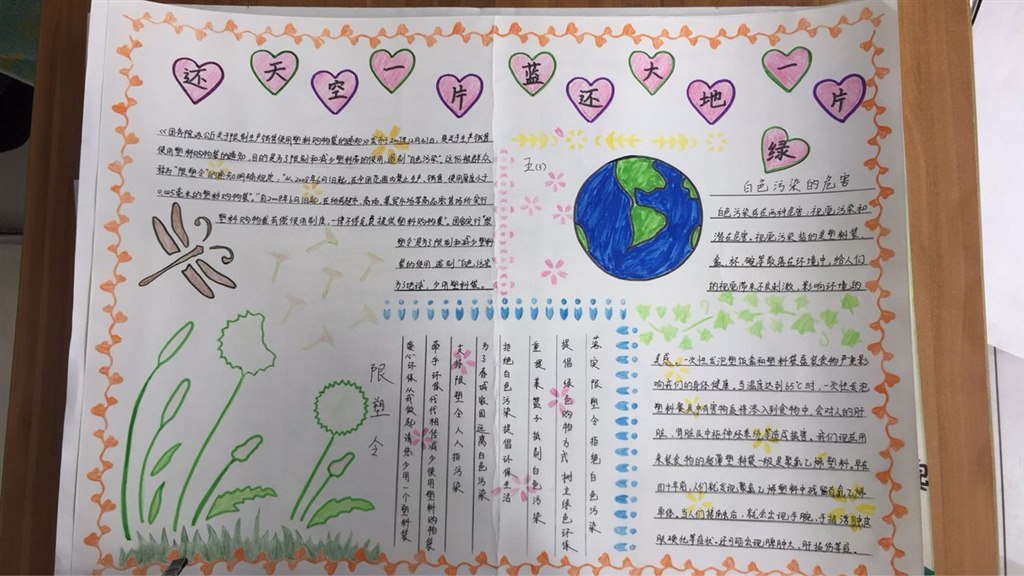 还天空一片蓝 还大地一片绿
《国务院办公厅关于限制生产销售使用塑料购物袋的通知》发布于2007年12月31日，是关于生产销售
使用塑料购物袋的通知，目的是为了限制和减少塑料袋的使用，遏制“白色污染”。这份被群众
称为“限塑令”的通知明确规定：“从2008年6月1日起，在全国范围内禁止生产、销售、使用厚度小于
0.025毫米的塑料购物袋”，“自2008年6月1日起，在所有超市、商场、集贸市场等商品零售场所实行
塑料购物袋有偿使用制度，一律不得免费提供塑料购物袋”。国家实行“限
塑令”是为了限制和减少塑料
袋的使用，遏制“白色污染”
为了地球，少用塑料袋。
五(5)
白色污染的危害
白色污染存在两种危害，视觉污染和
潜在危害。视觉污染指的是塑料袋、
盒、杯、碗等散落在环境中，给人们
的视觉带来不良刺激，影响环境的
美感。一次性发泡塑饭盒和塑料袋盛装食物严重影
响我们的身体健康。当温度达到65℃时，一次性发泡
塑料餐具中有害物质将渗入到食物中，会对人的肝
脏、肾脏及中枢神经系统等造成损害。我们现在用
来装食物的超薄塑料袋一般是聚氯乙烯塑料。早在
四十年前，人们就发现聚氯乙烯塑料中残留有氯乙烯
单体。当人们接触后，就会出现手腕、手指浮肿，皮
肤硬化等症状，还可能出现脾肿大、肝损伤等症。
限塑令
落实限塑令 拒绝白色污染
提倡绿色购物方式 树立绿色环保
重提菜篮子 抵制白色污染
拒绝白色污染 提倡环保生活
为了春城家园 远离白色污染
支持限塑令 人人拒污染
牵手环保代代相传 减少使用塑料购物袋
爱心环保从我做起 请您少用一个塑料袋